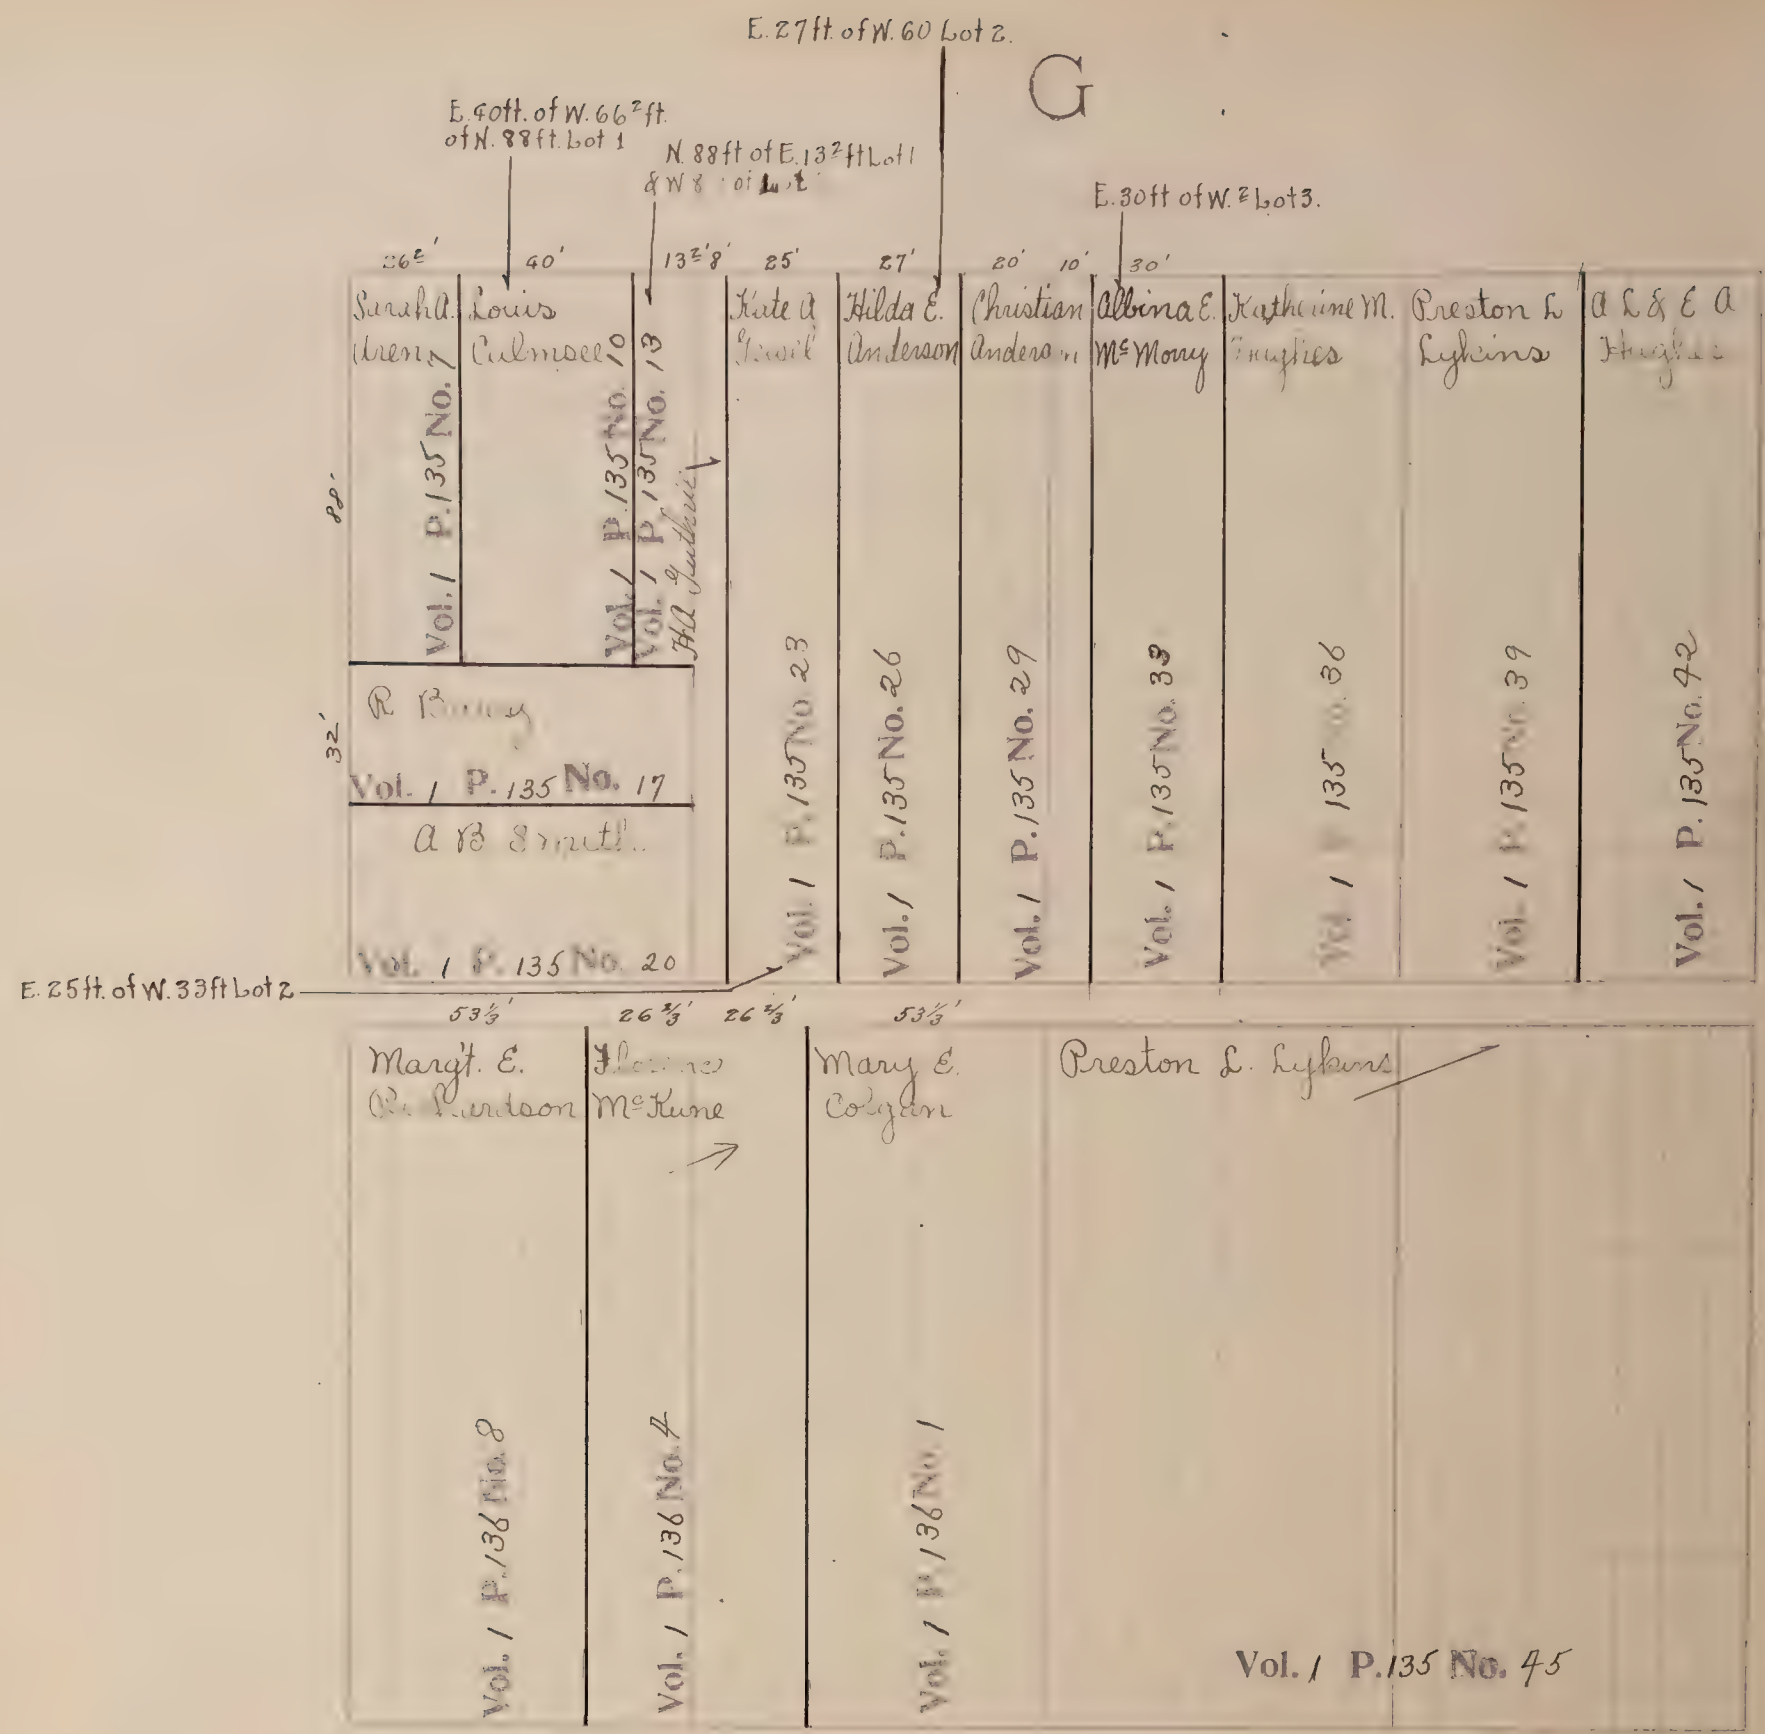 E. 27 ft. of W. 60 Lot 2.
G
E. 40 ft. of W. 66² ft.
of N. 88 ft. Lot 1
N. 88 ft of E. 13² ft Lot 1
& W 8
E. 30 ft of W. ½ Lot 3.
26²' 40' 13²' 8' 25' 27' 20' 10' 30'
Sarah A.
Uren
Vol. 1 P. 135 No. 7
Louis
Culmsee
Vol. 1 P. 135 No. 10
Vol. 1 P. 135 No. 13
H A Guthrie
Kate A
Vol. 1 P. 135 No. 23
Hilda E.
Anderson
Vol. 1 P. 135 No. 26
Christian
Anderson
Vol. 1 P. 135 No. 29
Albina E.
McMorry
Vol. 1 P. 135 No. 33
Katherine M.
Hughes
Vol. 1 P 135 No. 36
Preston L
Lykins
Vol. 1 P. 135 No. 39
A L & E A
Hughes
Vol. 1 P. 135 No. 42
88'
32'
R
Vol. 1 P. 135 No. 17
A B Smith
Vol. 1 P. 135 No. 20
E. 25 ft. of W. 33 ft Lot 2
53⅓' 26⅔' 26⅔' 53⅓'
Marg't. E.
Richardson
Vol. 1 P. 136 No. 8
McKune
Vol. 1 P. 136 No. 4
Mary E.
Colgan
Vol. 1 P. 136 No. 1
Preston L. Lykins
Vol. 1 P. 135 No. 45